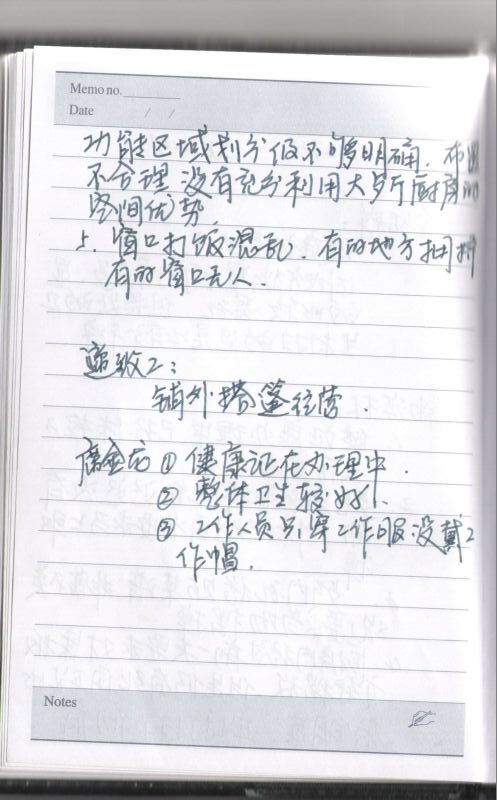 Memo no.
Date / /
功能区域划分仍不够明确、布
不合理、没有充分利用大岁厅厨房的
空间优势.
上、窗口打饭混乱、有的地方拥挤
有的窗口无人.
2:
铺外搭篷经营.
① 健康证在办理中.
② 整体卫生较好.
③ 工作人员只穿工作服没戴工
作帽.
Notes